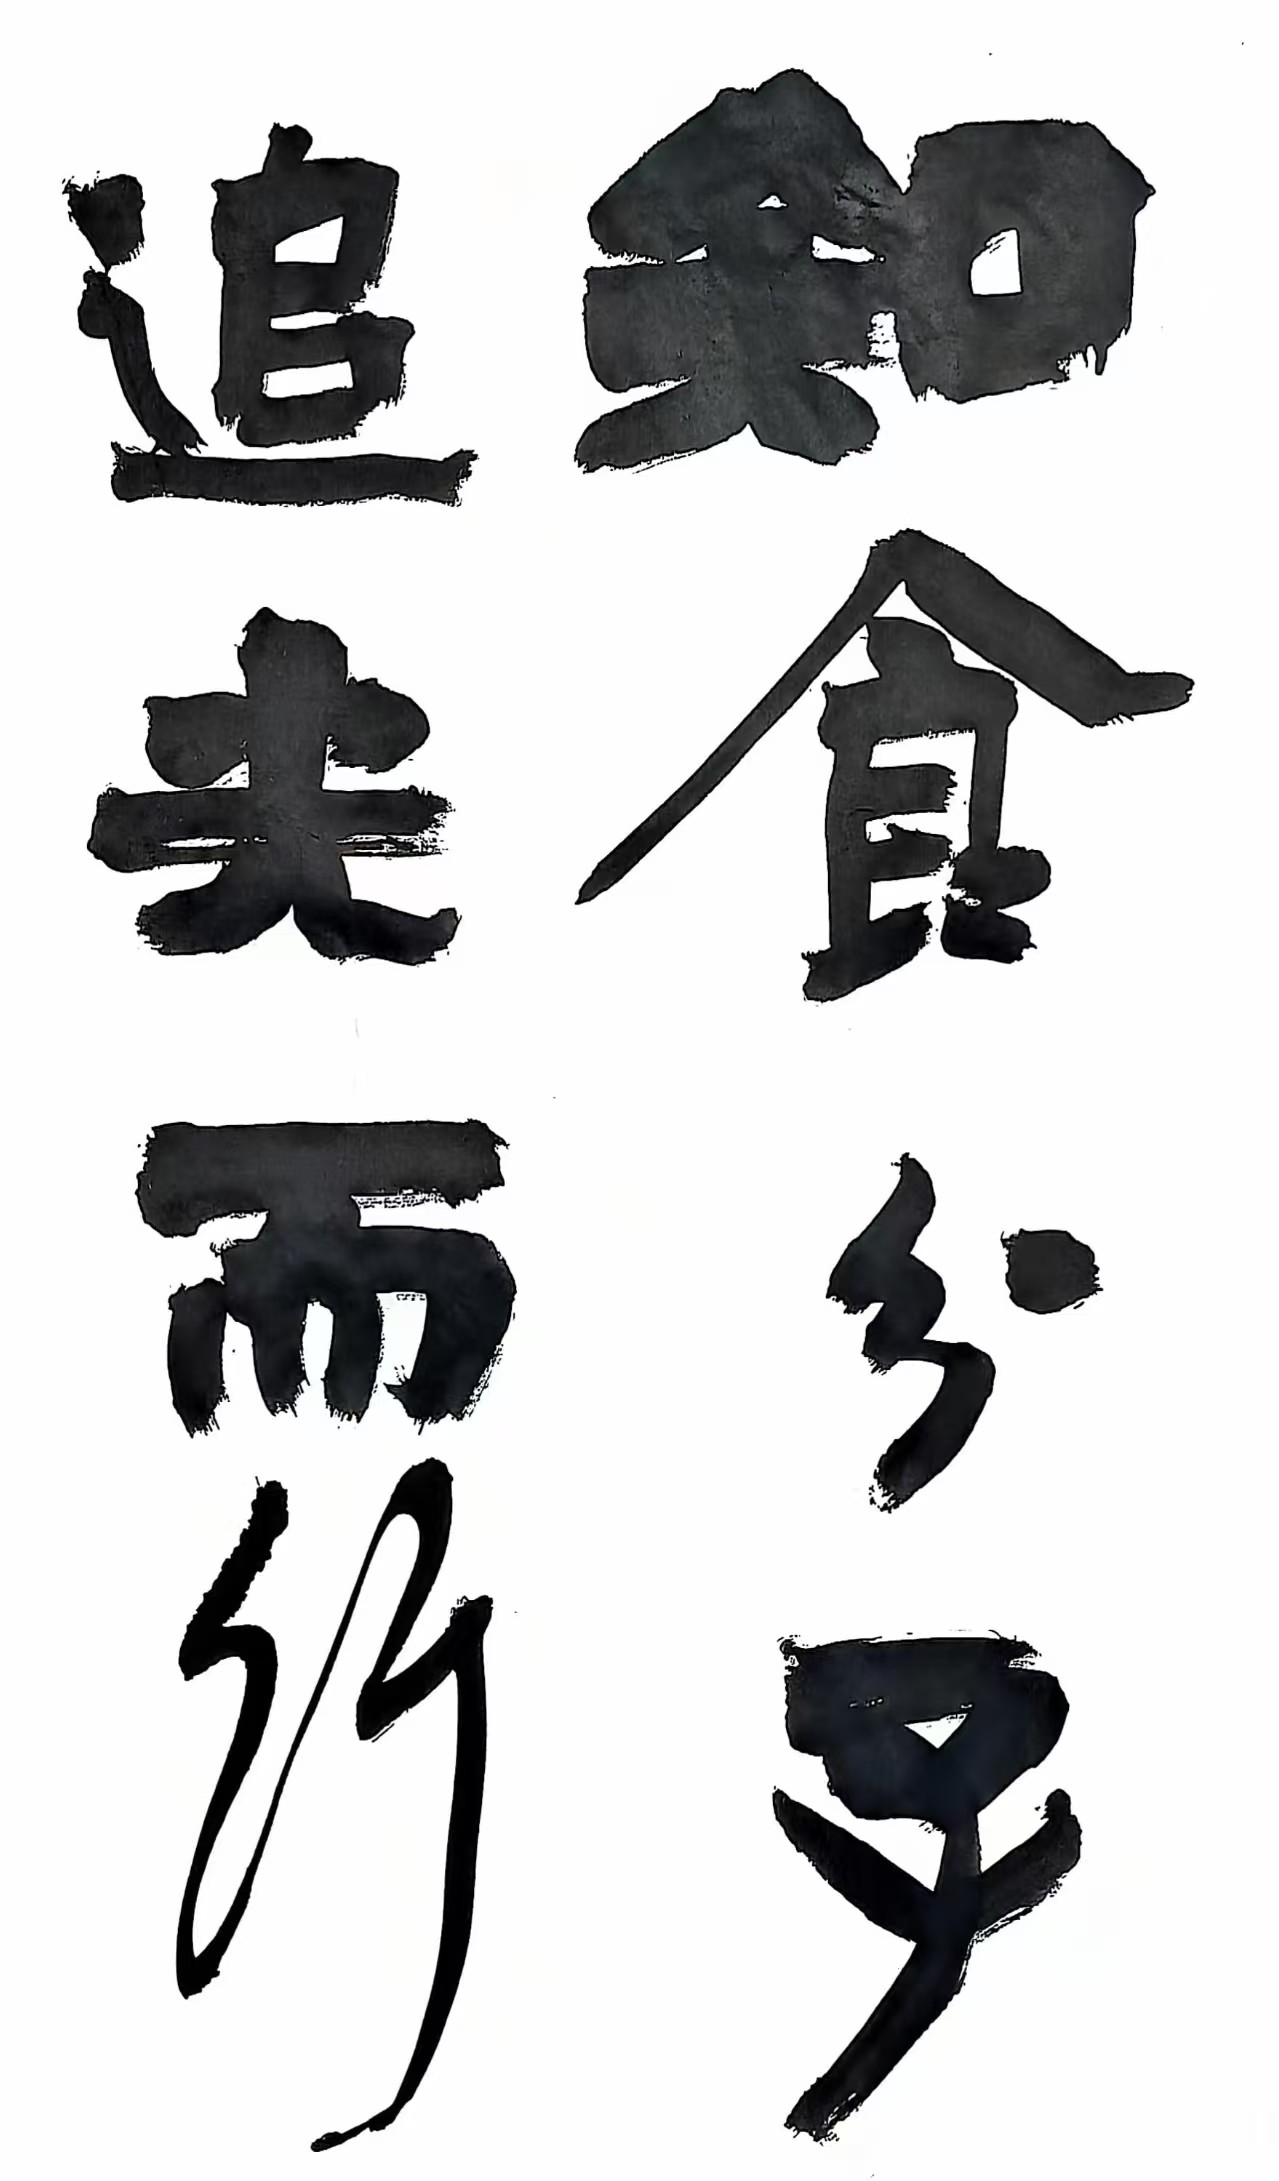 知食分子
追光而行